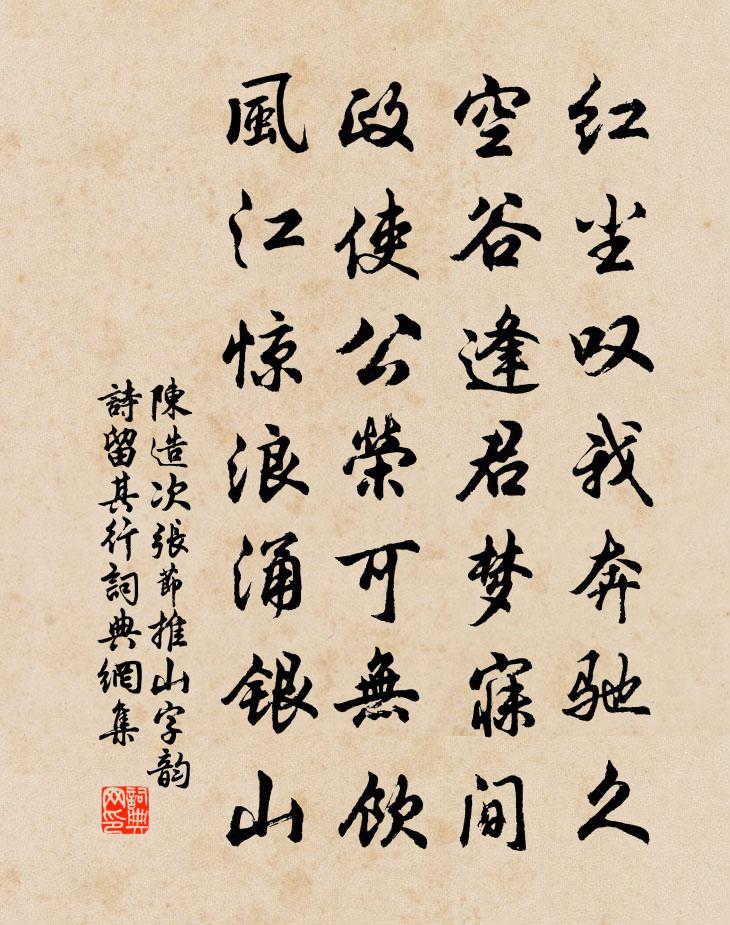 红尘叹我奔驰久
空谷逢君梦寐间
政使公荣可無饮
風江惊浪涌银山
陳造次張節推山字韵
詩留其行詞典網集
詞典网印